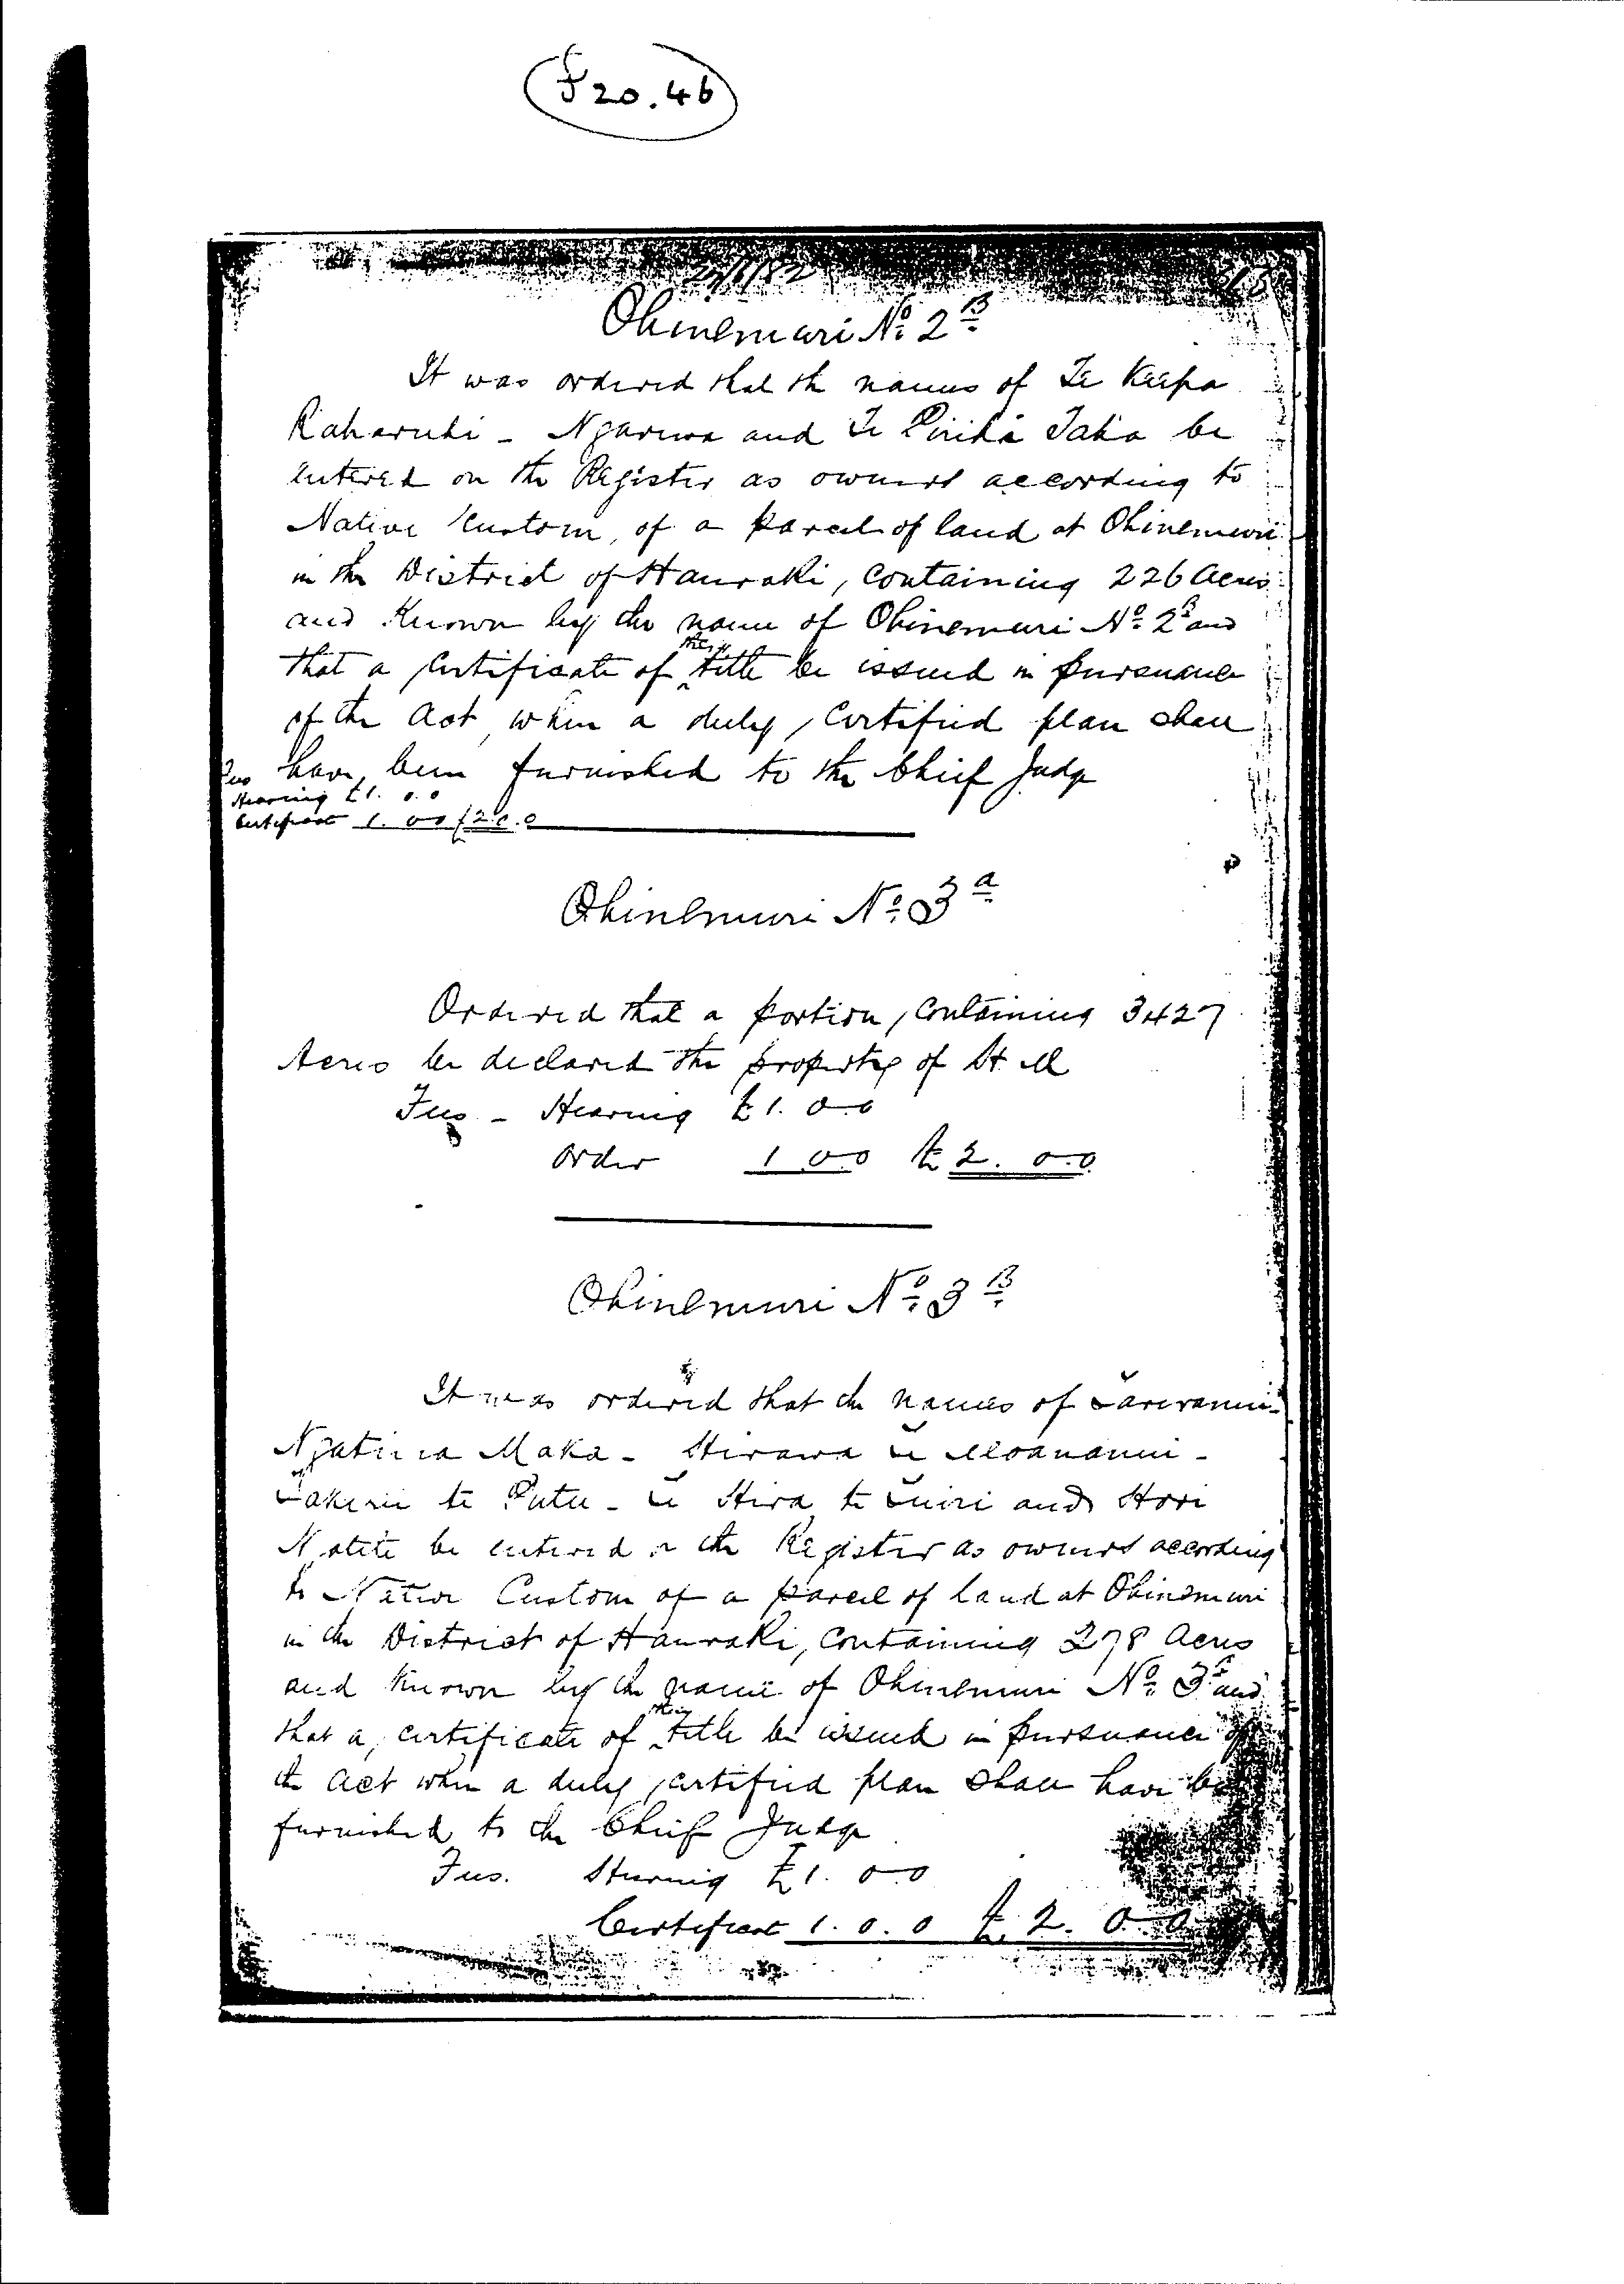 J20.46
Ohinemuri No. 2B
It was ordered that the names of Te Keepa
Raharuhi - Ngariwa and Te Piriha Taka be
entered on the Register as owners according to
Native Custom, of a parcel of land at Ohinemuri
in the District of Hauraki, containing 226 acres
and Known by the name of Ohinemuri No. 2B and
that a Certificate of their title be issued in pursuance
of the Act when a duly certified plan shall
have been furnished to the Chief Judge
Fees
Hearing £1. 0. 0
Certificate 1. 0 0 £2. 0. 0
Ohinemuri No. 3a
Ordered that a portion, containing 3427
Acres be declared the property of H. M
Fees - Hearing £1. 0. 0
Order 1 0 0 £2. 0. 0
Ohinemuri No. 3B
It was ordered that the names of
Maka - Hirawa te Moananui -
te Putu - te Hira te Tuiri and Hori
be entered on the Register as owners according
to Native Custom of a parcel of land at Ohinemuri
in the District of Hauraki, containing 278 Acres
and Known by the name of Ohinemuri No. 3B and
that a certificate of their title be issued in pursuance of
the Act when a duly certified plan shall have been
furnished to the Chief Judge
Fees. Hearing £1. 0 0
Certificate 1. 0. 0 £2. 0. 0